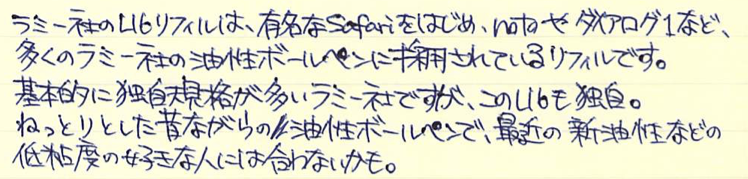 ラミー社のL16リフィルは、有名なSafariをはじめ、notoやダイアログ1など、
多くのラミー社の油性ボールペンに採用されているリフィルです。
基本的に独自規格が多いラミー社ですが、このL16も独自。
ねっとりとした昔ながらの油性ボールペンで、最近の新油性などの
低粘度の好きな人には合わないかも。